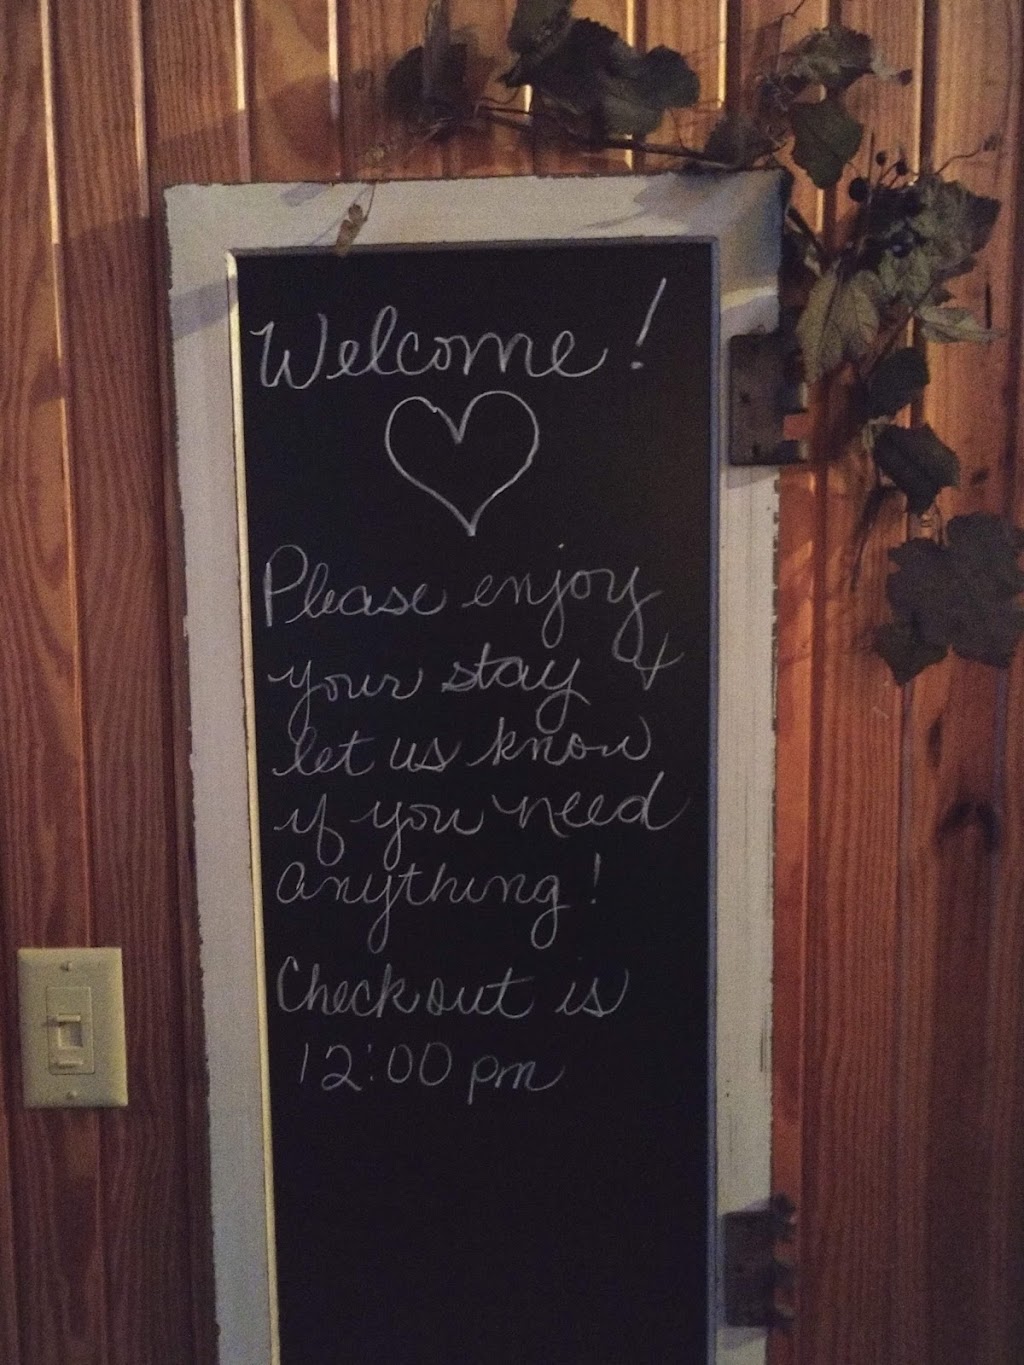 Welcome!
Please enjoy
your stay &
let us know
if you need
anything!
Checkout is
12:00 pm